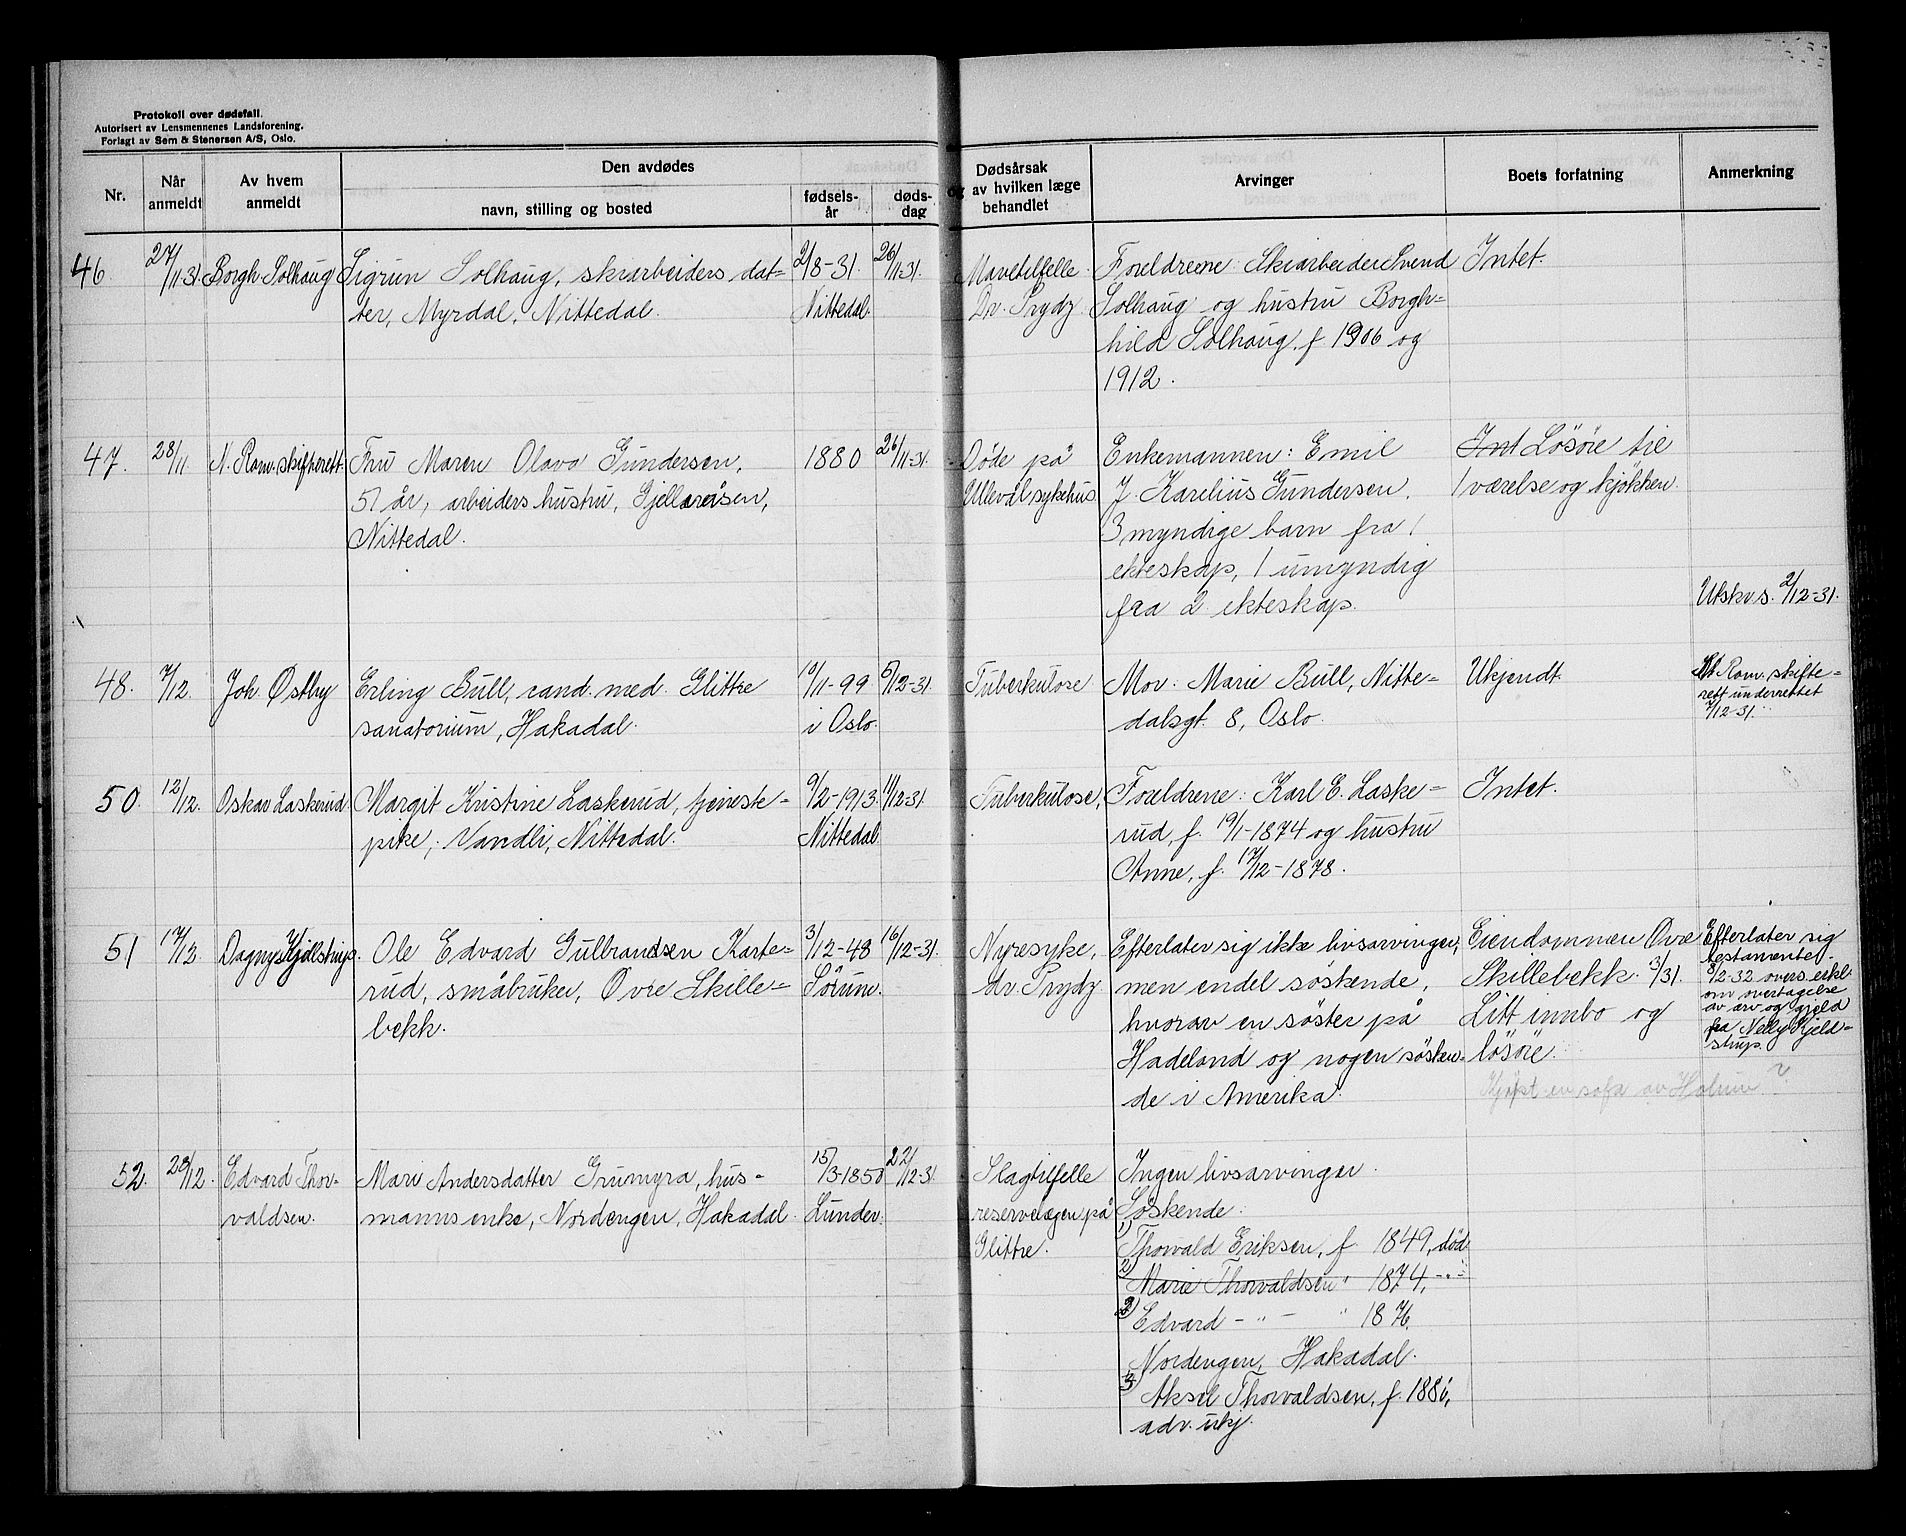 Protokoll over dødsfall.
Autorisert av Lensmennenes Landsforening.
Forlagt av Sem & Stenersen A/S, Oslo.
Nr.
Når anmeldt
Av hvem anmeldt
Den avdødes
navn, stilling og bosted
fødsels-år
døds-dag
Dødsårsak og av hvilken læge behandlet
Arvinger
Boets forfatning
Anmerkning
46
27/11-31
Borgh. Solhaug
Sigrun Solhaug, skiarbeiders dat-
ter, Myrdal, Nittedal.
2/8-31.
Nittedal.
26/11-31.
Mavetilfelle.
Dr. Prydz
Foreldrene: Skiarbeider Svend
Solhaug og hustru Borgh-
hild Solhaug, f 1906 og
1912.
Intet.
47.
28/11
N. Rom. skifterett.
Fru Maren Olava Gundersen,
51 år, arbeiders hustru, Gjelleråsen,
Nittedal.
1880
26/11-31.
Døde på
Ullevål sykehus
Enkemannen: Emil
J. Karelius Gundersen.
3 myndige barn fra 1
ekteskap, 1 umyndig
fra 2 ekteskap.
Int Løsøre til
1 værelse og kjøkken.
Utskr. s. 2/12-31.
48.
7/12.
Joh. Østby
Erling Bull, cand. med. Glittre
sanatorium, Hakadal.
10/11-99
i Oslo.
5/12-31.
Tuberkulose
Mor: Marie Bull, Nitte-
dalsgt. 8, Oslo.
Ukjendt.
N. Rom. skifte-
rett underrettet
7/12-31.
50.
12/12.
Oskar Laskerud
Margit Kristine Laskerud, tjeneste-
pike, Vandli, Nittedal.
9/2-1913.
Nittedal
11/12-31.
Tuberkulose,
Foreldrene: Karl E. Laske-
rud, f. 19/1-1874 og hustru
Anne, f. 17/12-1878.
Intet.
51
17/12.
Dagny Kjellstrup.
Ole Edvard Gulbrandsen Karte-
rud, småbruker, Øvre Skille-
bekk.
3/12-48
Sørum.
16/12-31.
Nyresyke,
dr. Prydz
Efterlater sig ikke livsarvinger,
men endel søskende,
hvorav en søster på
Hadeland og nogen søsken-
de i Amerika.
Eiendommen Øvre
Skillebekk. 3/31.
Litt innbo og
løsøre.
Kjøpt en sofa av Holum?
Efterlater sig
testamente.
8/2-32 overs. erkl.
om overtagelse
av arv og gjeld
fra Nelly Kjeld-
strup.
52.
28/12.
Edvard Thor-
valdsen.
Mari Andersdatter Grumyra, hus-
manns enke, Nordengen, Hakadal.
15/3-1850
Lunder.
22/12-31.
Slagtilfelle
reservelægen på
Glittre.
Ingen livsarvinger.
Søskende:
1) Thorvald Eriksen, f. 1849, død
2) Marie Thorvaldsen " 1874, -"-
2) Edvard - " - " 1876.
Nordengen, Hakadal.
3) Aksel Thorvaldsen, f. 1886,
adr. ukj.